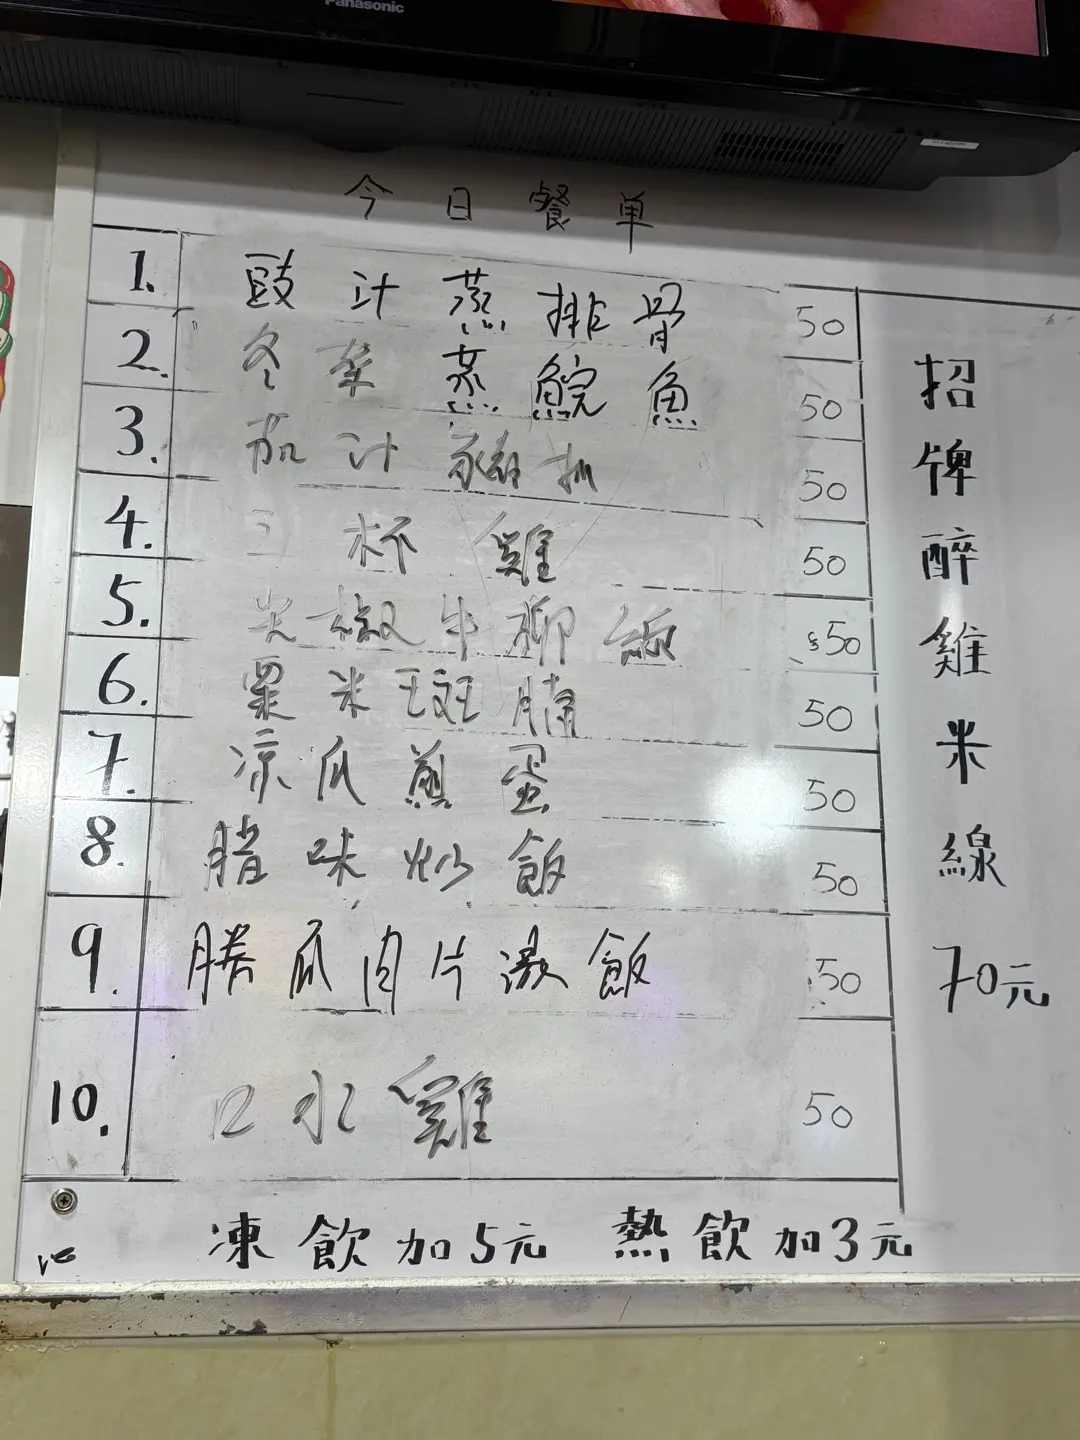 Panasonic
今日餐单
1. 豉汁蒸排骨 50
2. 冬菜蒸鯇魚 50
3. 茄汁豬扒 50
4. 三杯雞 50
5. 尖椒牛柳絲 $50
6. 粟米班腩 50
7. 凉瓜煎蛋 50
8. 腊味炒飯 50
9. 勝瓜肉片激飯 50
10. 口水雞 50
凍飲加5元 熱飲加3元
招牌醉雞米線 70元